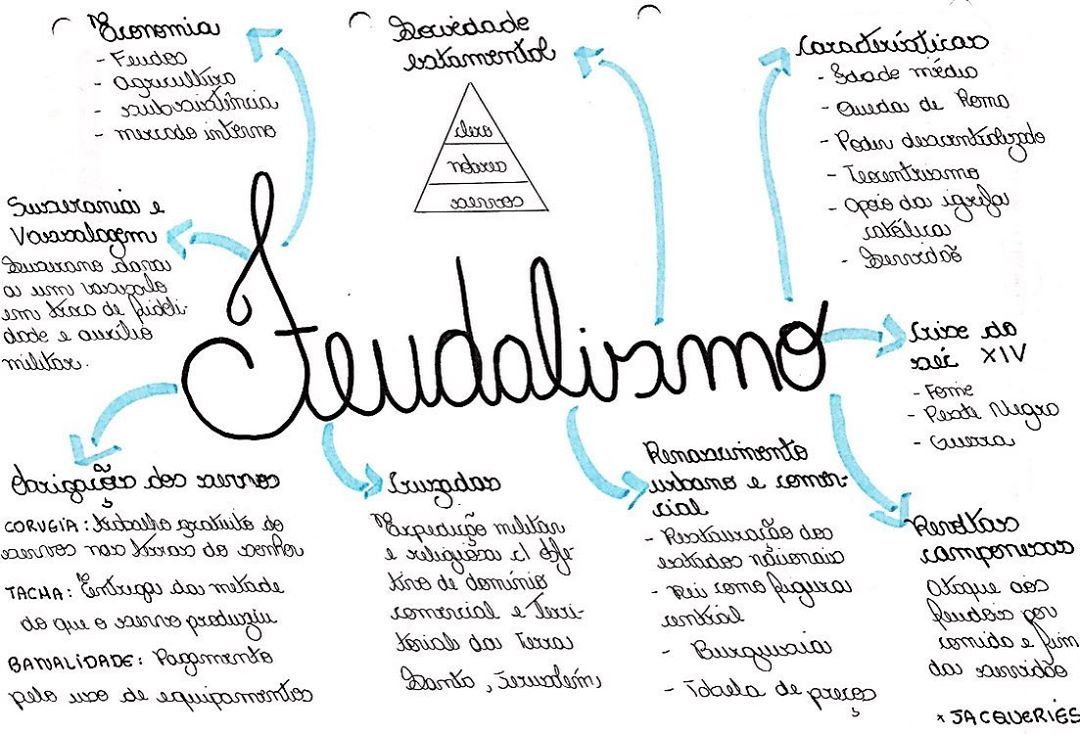 Economia
- Feudos
- agricultura
- subsistência
- mercado interno
Sociedade
estamental
clero
nobreza
servos
Características
- Idade média
- Queda de Roma
- Poder descentralizado
- Teocentrismo
- Apoio da igreja
católica
- Servidão
Suserania e
Vassalagem
Suserano dava
a um vassalo
em troca de fideli-
dade e auxílio
militar.
Feudalismo
Crise do
séc XIV
- Fome
- Peste Negra
- Guerra
Obrigação dos servos
CORVEIA: trabalho gratuito do
servos nas terras do senhor
TACHA: Entrega da metade
do que o servo produziu
BANALIDADE: Pagamento
pelo uso de equipamentos
Cruzadas
Expedição militar
e religiosa c/ obje
tivo de domínio
comercial e Terri-
torial da Terra
Santa, Jerusalém,
Renascimento
urbano e comer-
cial
- Restauração dos
estados nacionais
- Rei como figura
central
- Burguesia
- Tabela de preços
Revoltas
camponesas
Ataque aos
feudos por
comida e fim
da servidão
* JACQUERIES